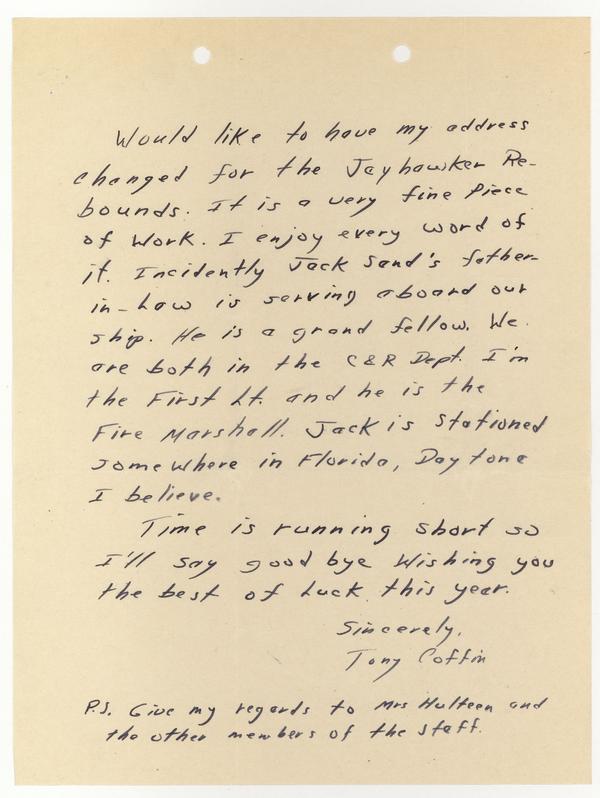 Would like to have my address
changed for the Jayhawker Re-
bounds. It is a very fine piece
of work. I enjoy every word of
it. Incidently Jack Sand's father-
in-Law is serving aboard our
ship. He is a grand fellow. We
are both in the C&R Dept. I'm
the First Lt. and he is the
Fire Marshall. Jack is stationed
somewhere in Florida, Daytona
I believe.
Time is running short so
I'll say good bye wishing you
the best of Luck this year.
Sincerely,
Tony Coffin
P.S. Give my regards to Mrs Hulteen and
the other members of the staff.